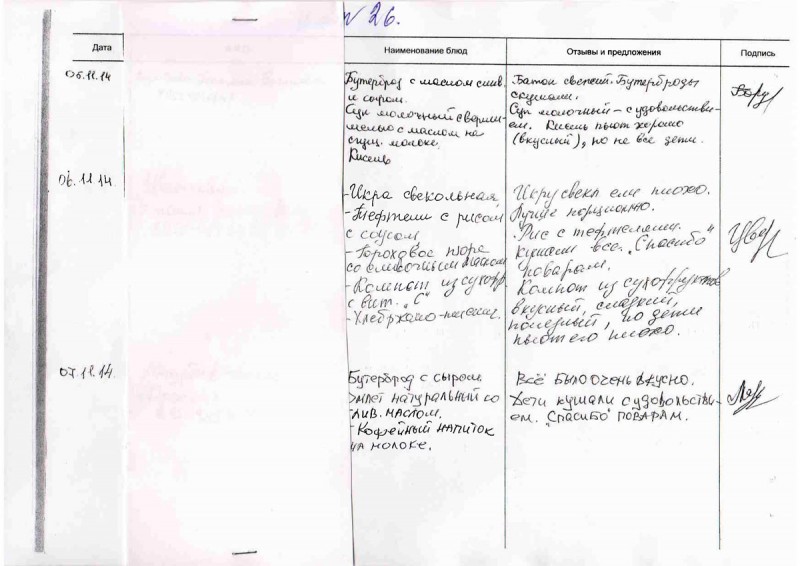 № 26.
Дата
Наименование блюд
Отзывы и предложения
Подпись
06.11.14
Бутерброд с маслом слив.
и сыром.
Суп молочный с верми-
шелью с маслом на
сгущ. молоке.
Кисель
Батон свежий. Бутерброды
скушали.
Суп молочный – с удовольстви-
ем. Кисель пьют хорошо
(вкусный), но не все дети.
06.11.14.
- Икра свекольная,
- Тефтели с рисом
с соусом
- Гороховое пюре
со сливочным маслом
- Компот из сухофр.
с вит. „С"
- Хлеб ржано-пшенич.
Икру свекл. ели плохо.
Лучше порционно.
Рис с тефтелями.
кушали все. „Спасибо"
поварам.
Компот из сухофруктов
вкусный, сладкий,
полезный, но дети
пьют его плохо.
07.11.14.
Бутерброд с сыром
Омлет натуральный со
слив. маслом.
- Кофейный напиток
на молоке.
Всё было очень вкусно.
Дети кушали с удовольстви-
ем. „Спасибо" поварам.